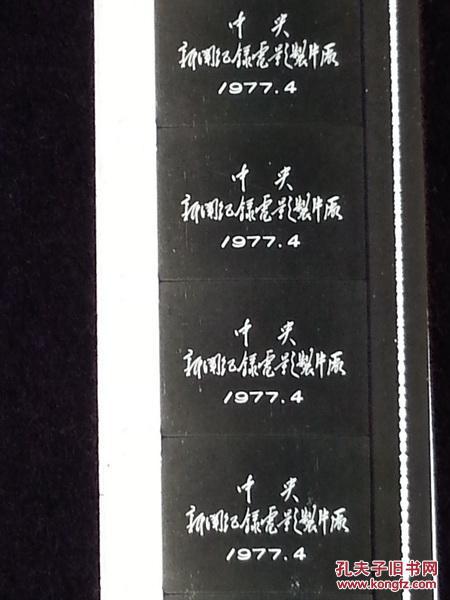 中央
新闻纪录電影製片厰
1977.4
中央
新闻纪录電影製片厰
1977.4
中央
新闻纪录電影製片厰
1977.4
中央
新闻纪录電影製片厰
1977.4
孔夫子旧书网
www.kongfz.com